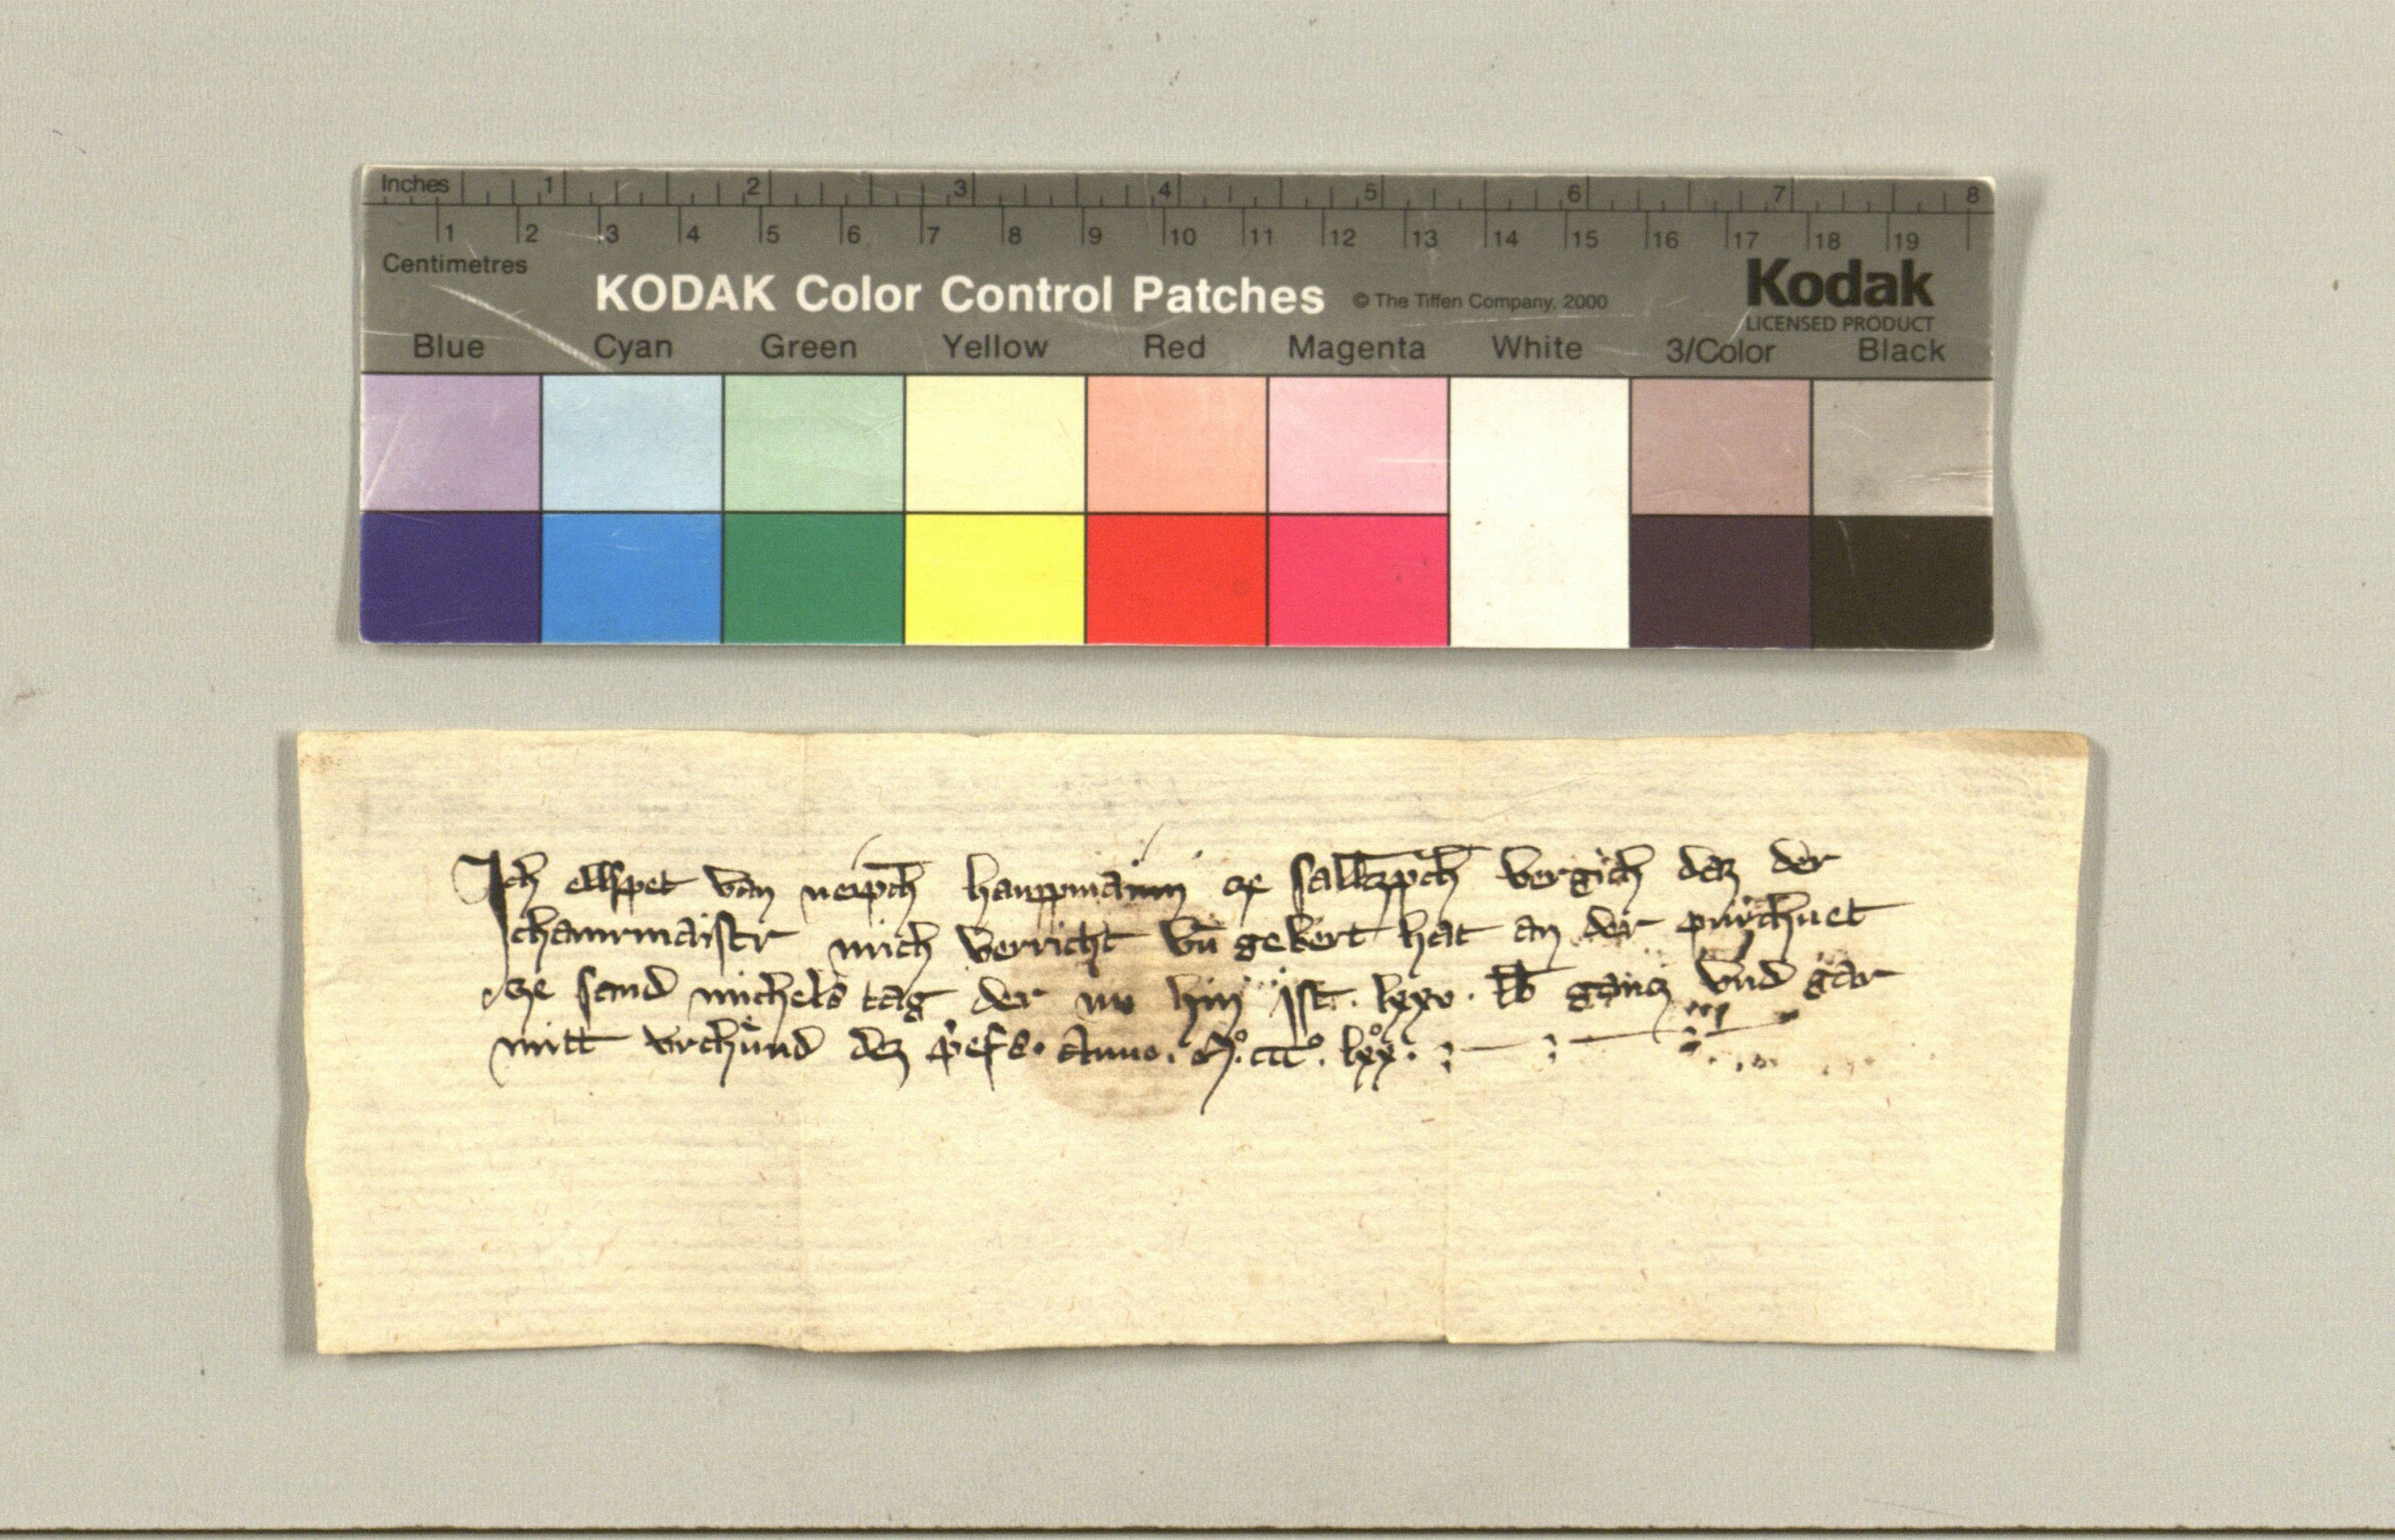 Inches 1 2 3 4 5 6 7 8
1 2 3 4 5 6 7 8 9 10 11 12 13 14 15 16 17 18 19
Centimetres
KODAK Color Control Patches © The Tiffen Company, 2000 Kodak
LICENSED PRODUCT
Blue Cyan Green Yellow Red Magenta White 3/Color Black
Ich ellspet van neipch hauppmanin ze salltzpch vergich daz der
schamrmaistr mich verricht vn̄ gebert hat an der purchuet
ze sand michels tag der nu hin ist . lxxv . lb gancz vnd gar
mitt vrchund dez priefs . Anno . M° . ccc° . lxx° .